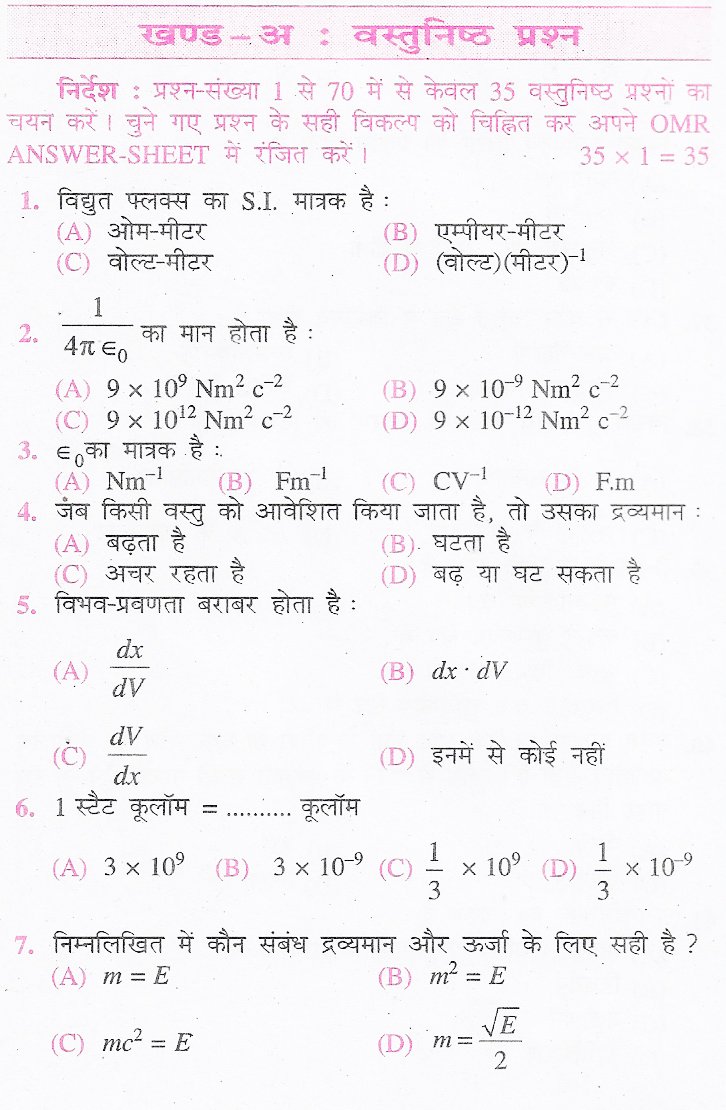 खण्ड – अ : वस्तुनिष्ठ प्रश्न
निर्देश : प्रश्न-संख्या 1 से 70 में से केवल 35 वस्तुनिष्ठ प्रश्नों का
चयन करें। चुने गए प्रश्न के सही विकल्प को चिह्नित कर अपने OMR
ANSWER-SHEET में रंजित करें। 35 × 1 = 35
1. विद्युत फ्लक्स का S.I. मात्रक है :
(A) ओम-मीटर (B) एम्पीयर-मीटर
(C) वोल्ट-मीटर (D) (वोल्ट)(मीटर)⁻¹
2. 1/4π∈₀ का मान होता है :
(A) 9 × 10⁹ Nm² c⁻² (B) 9 × 10⁻⁹ Nm² c⁻²
(C) 9 × 10¹² Nm² c⁻² (D) 9 × 10⁻¹² Nm² c⁻²
3. ∈₀का मात्रक है :
(A) Nm⁻¹ (B) Fm⁻¹ (C) CV⁻¹ (D) F.m
4. जब किसी वस्तु को आवेशित किया जाता है, तो उसका द्रव्यमान :
(A) बढ़ता है (B) घटता है
(C) अचर रहता है (D) बढ़ या घट सकता है
5. विभव-प्रवणता बराबर होता है :
(A) dx/dV (B) dx · dV
(C) dV/dx (D) इनमें से कोई नहीं
6. 1 स्टैट कूलॉम = .......... कूलॉम
(A) 3 × 10⁹ (B) 3 × 10⁻⁹ (C) 1/3 × 10⁹ (D) 1/3 × 10⁻⁹
7. निम्नलिखित में कौन संबंध द्रव्यमान और ऊर्जा के लिए सही है ?
(A) m = E (B) m² = E
(C) mc² = E (D) m = √E/2